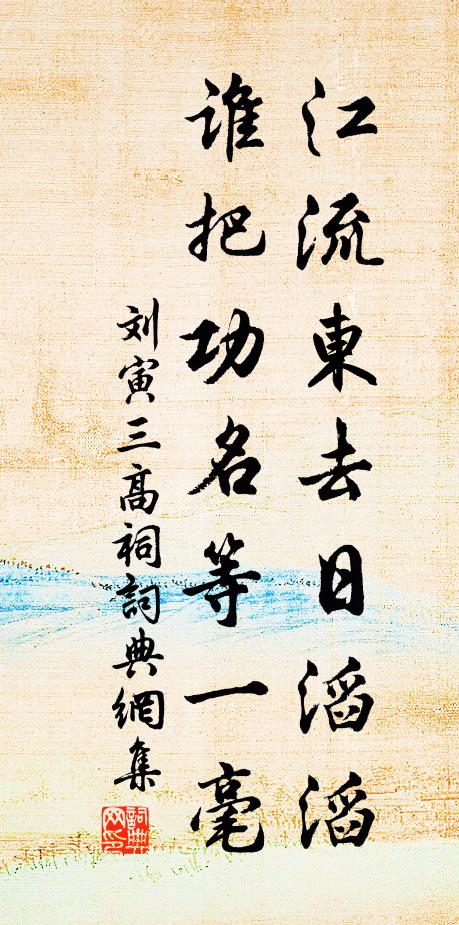 江流東去日滔滔
谁把功名等一毫
刘寅三高祠詞典網集
詞典网印